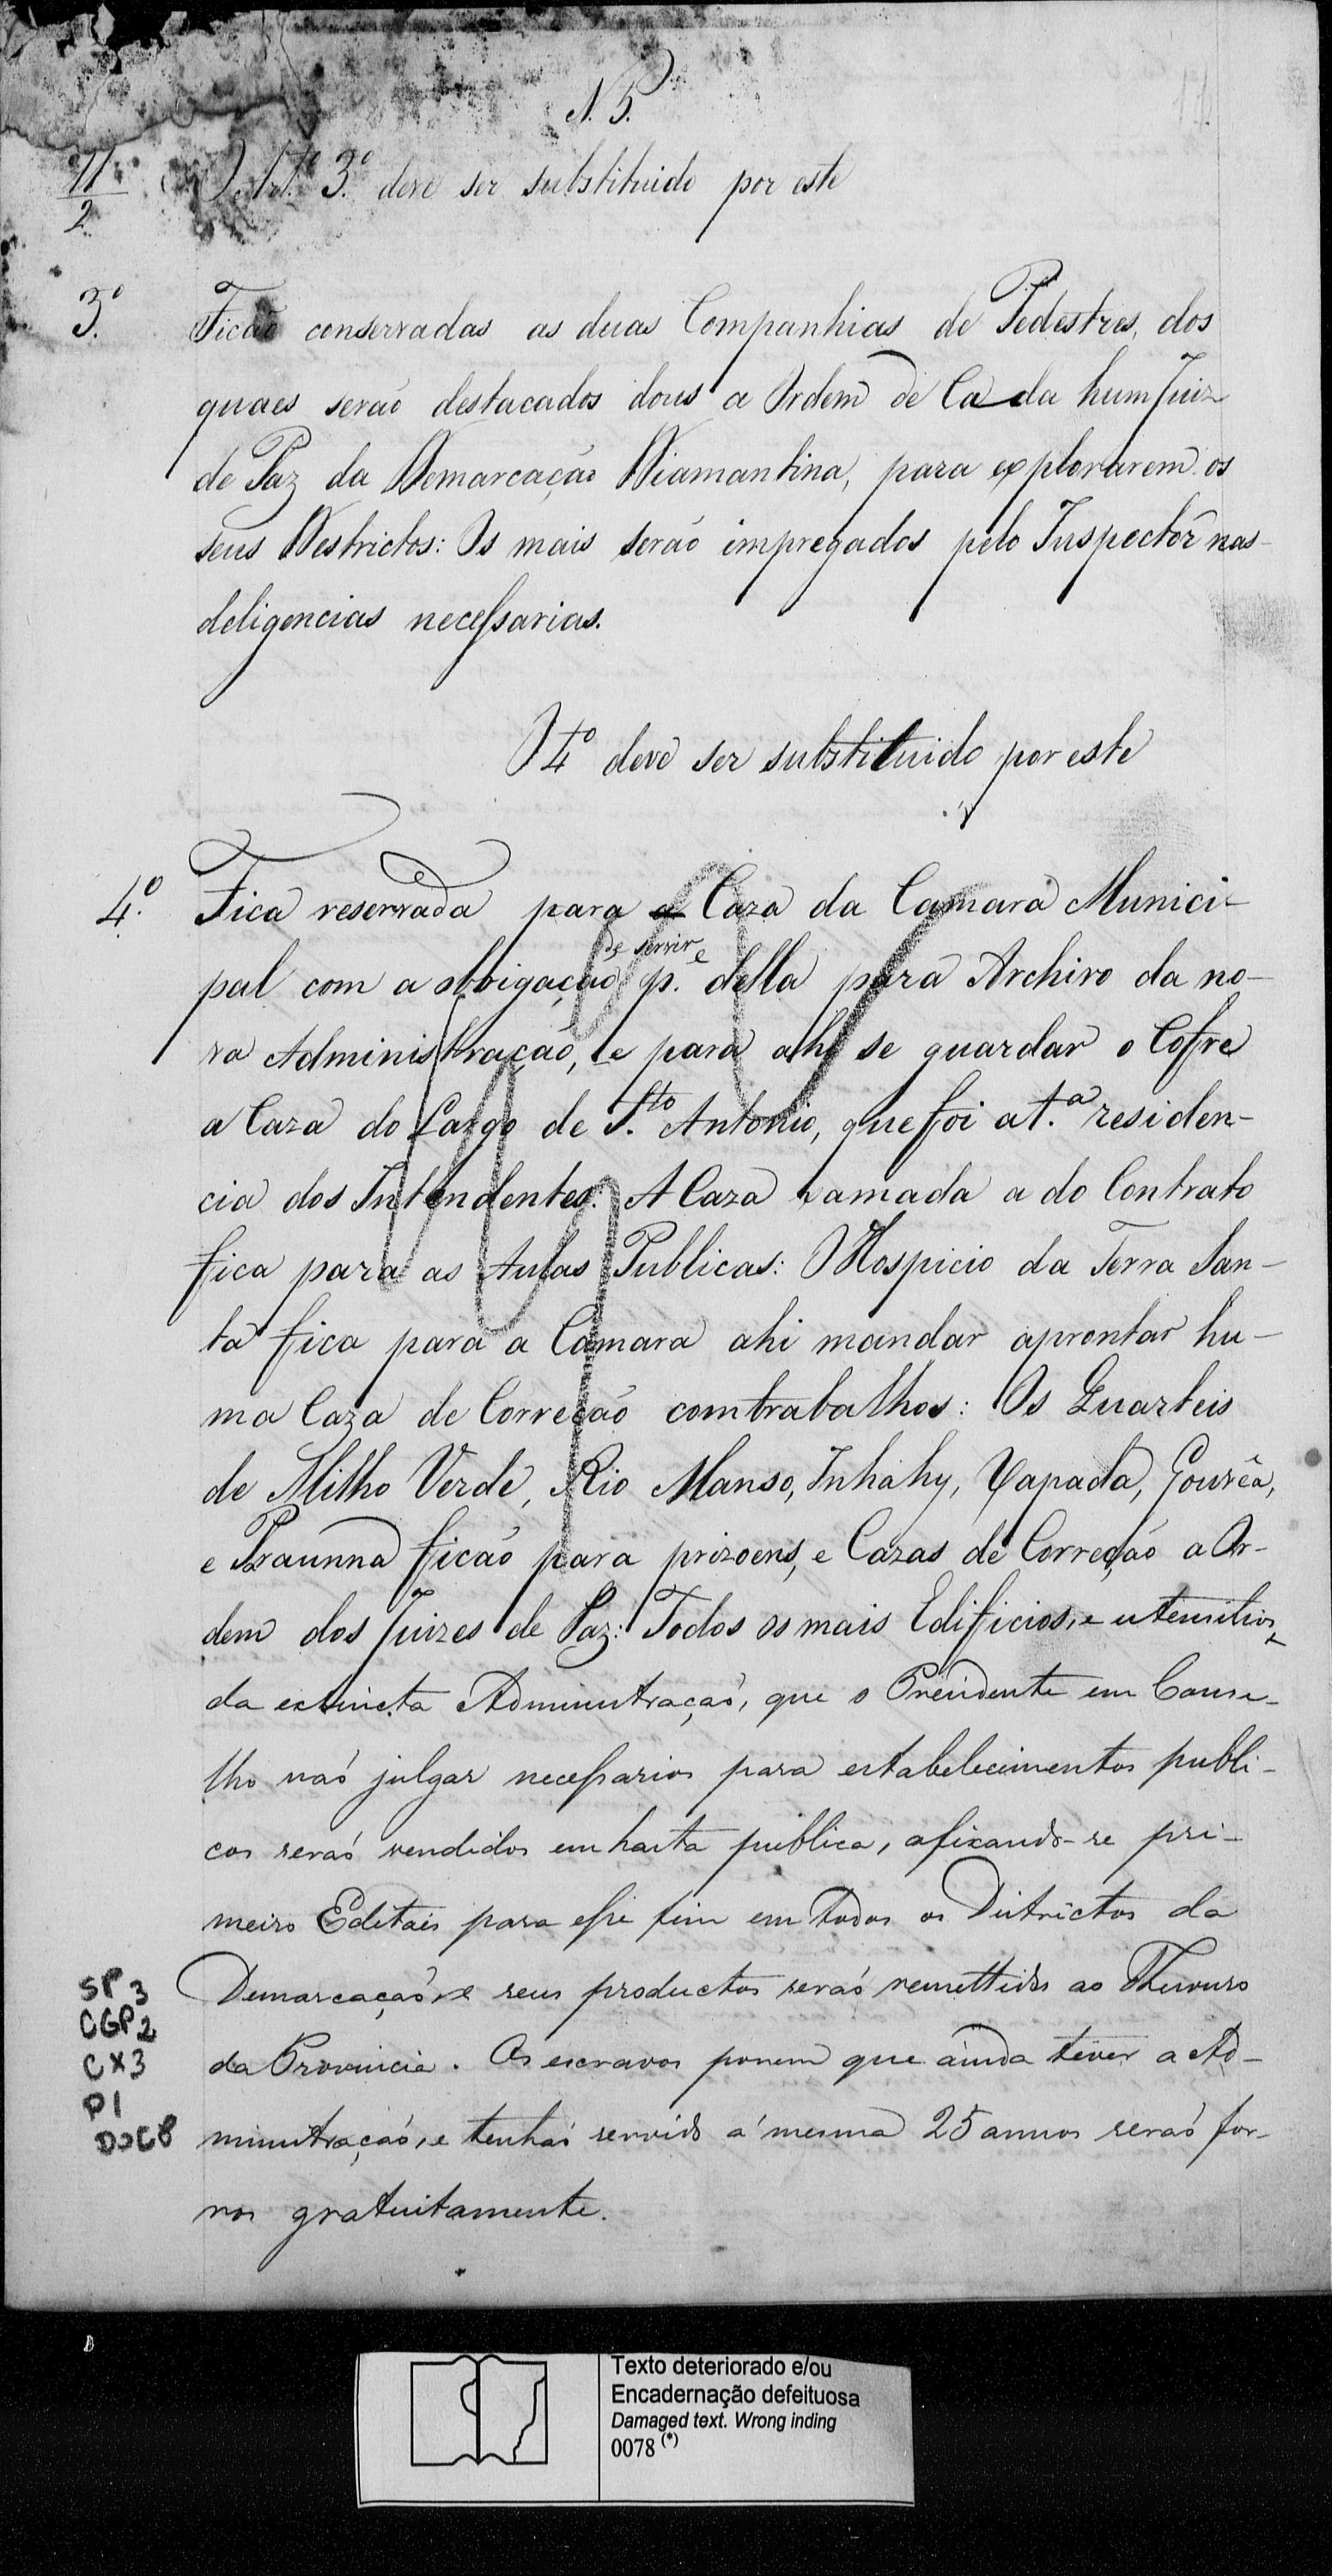 N. 5.
11
2
O Art.º 3.º deve ser substituido por este
3.º Ficão conservadas as duas Companhias de Pedestres, dos
quaes serão destacados dous a Ordem de Cada hum Juiz
de Paz da Demarcação Diamantina, para explorarem os
seus Destrictos: Os mais serão impregados pelo Inspector nas
deligencias necessarias.
O 4º deve ser substituido por este
4.º Fica reservada para a Caza da Camara Munici-
de servir e
pal com a obrigação p.ª della para Archivo da no-
va Administração, e para ahi se guardar o Cofre
a Caza do Largo de S.to Antonio, que foi at.ª residen-
cia dos Intendentes. A Caza xamada a do Contrato
fica para as Aulas Publicas: O Hospicio da Terra San-
ta fica para a Camara ahi mandar aprontar hu-
ma Caza de Correção com trabalhos: Os Quarteis
de Milho Verde, Rio Manso, Inhahy, Xapada, Gouvêa,
e Paraunna ficão para prizoens, e Cazas de Correção a Or-
dem dos Juizes de Paz: Todos os mais Edificios, e utensilios
da extincta Administração, que o Presidente em Conse-
lho não julgar necessarios para estabelecimentos publi-
cos serão vendidos em hasta publica, afixando-se pri-
meiro Editais para esse fim em todos os Districtos da
Demarcação, e seus productos serão remettidos ao Thesouro
da Provincia. Os escravos porem que ainda tiver a Ad-
ministração, e tenhão servido á mesma 25 annos serão for-
ros gratuitamente.
SP 3
CGP 2
CX3
P1
DOC8
Texto deteriorado e/ou
Encadernação defeituosa
Damaged text. Wrong inding
0078 (*)